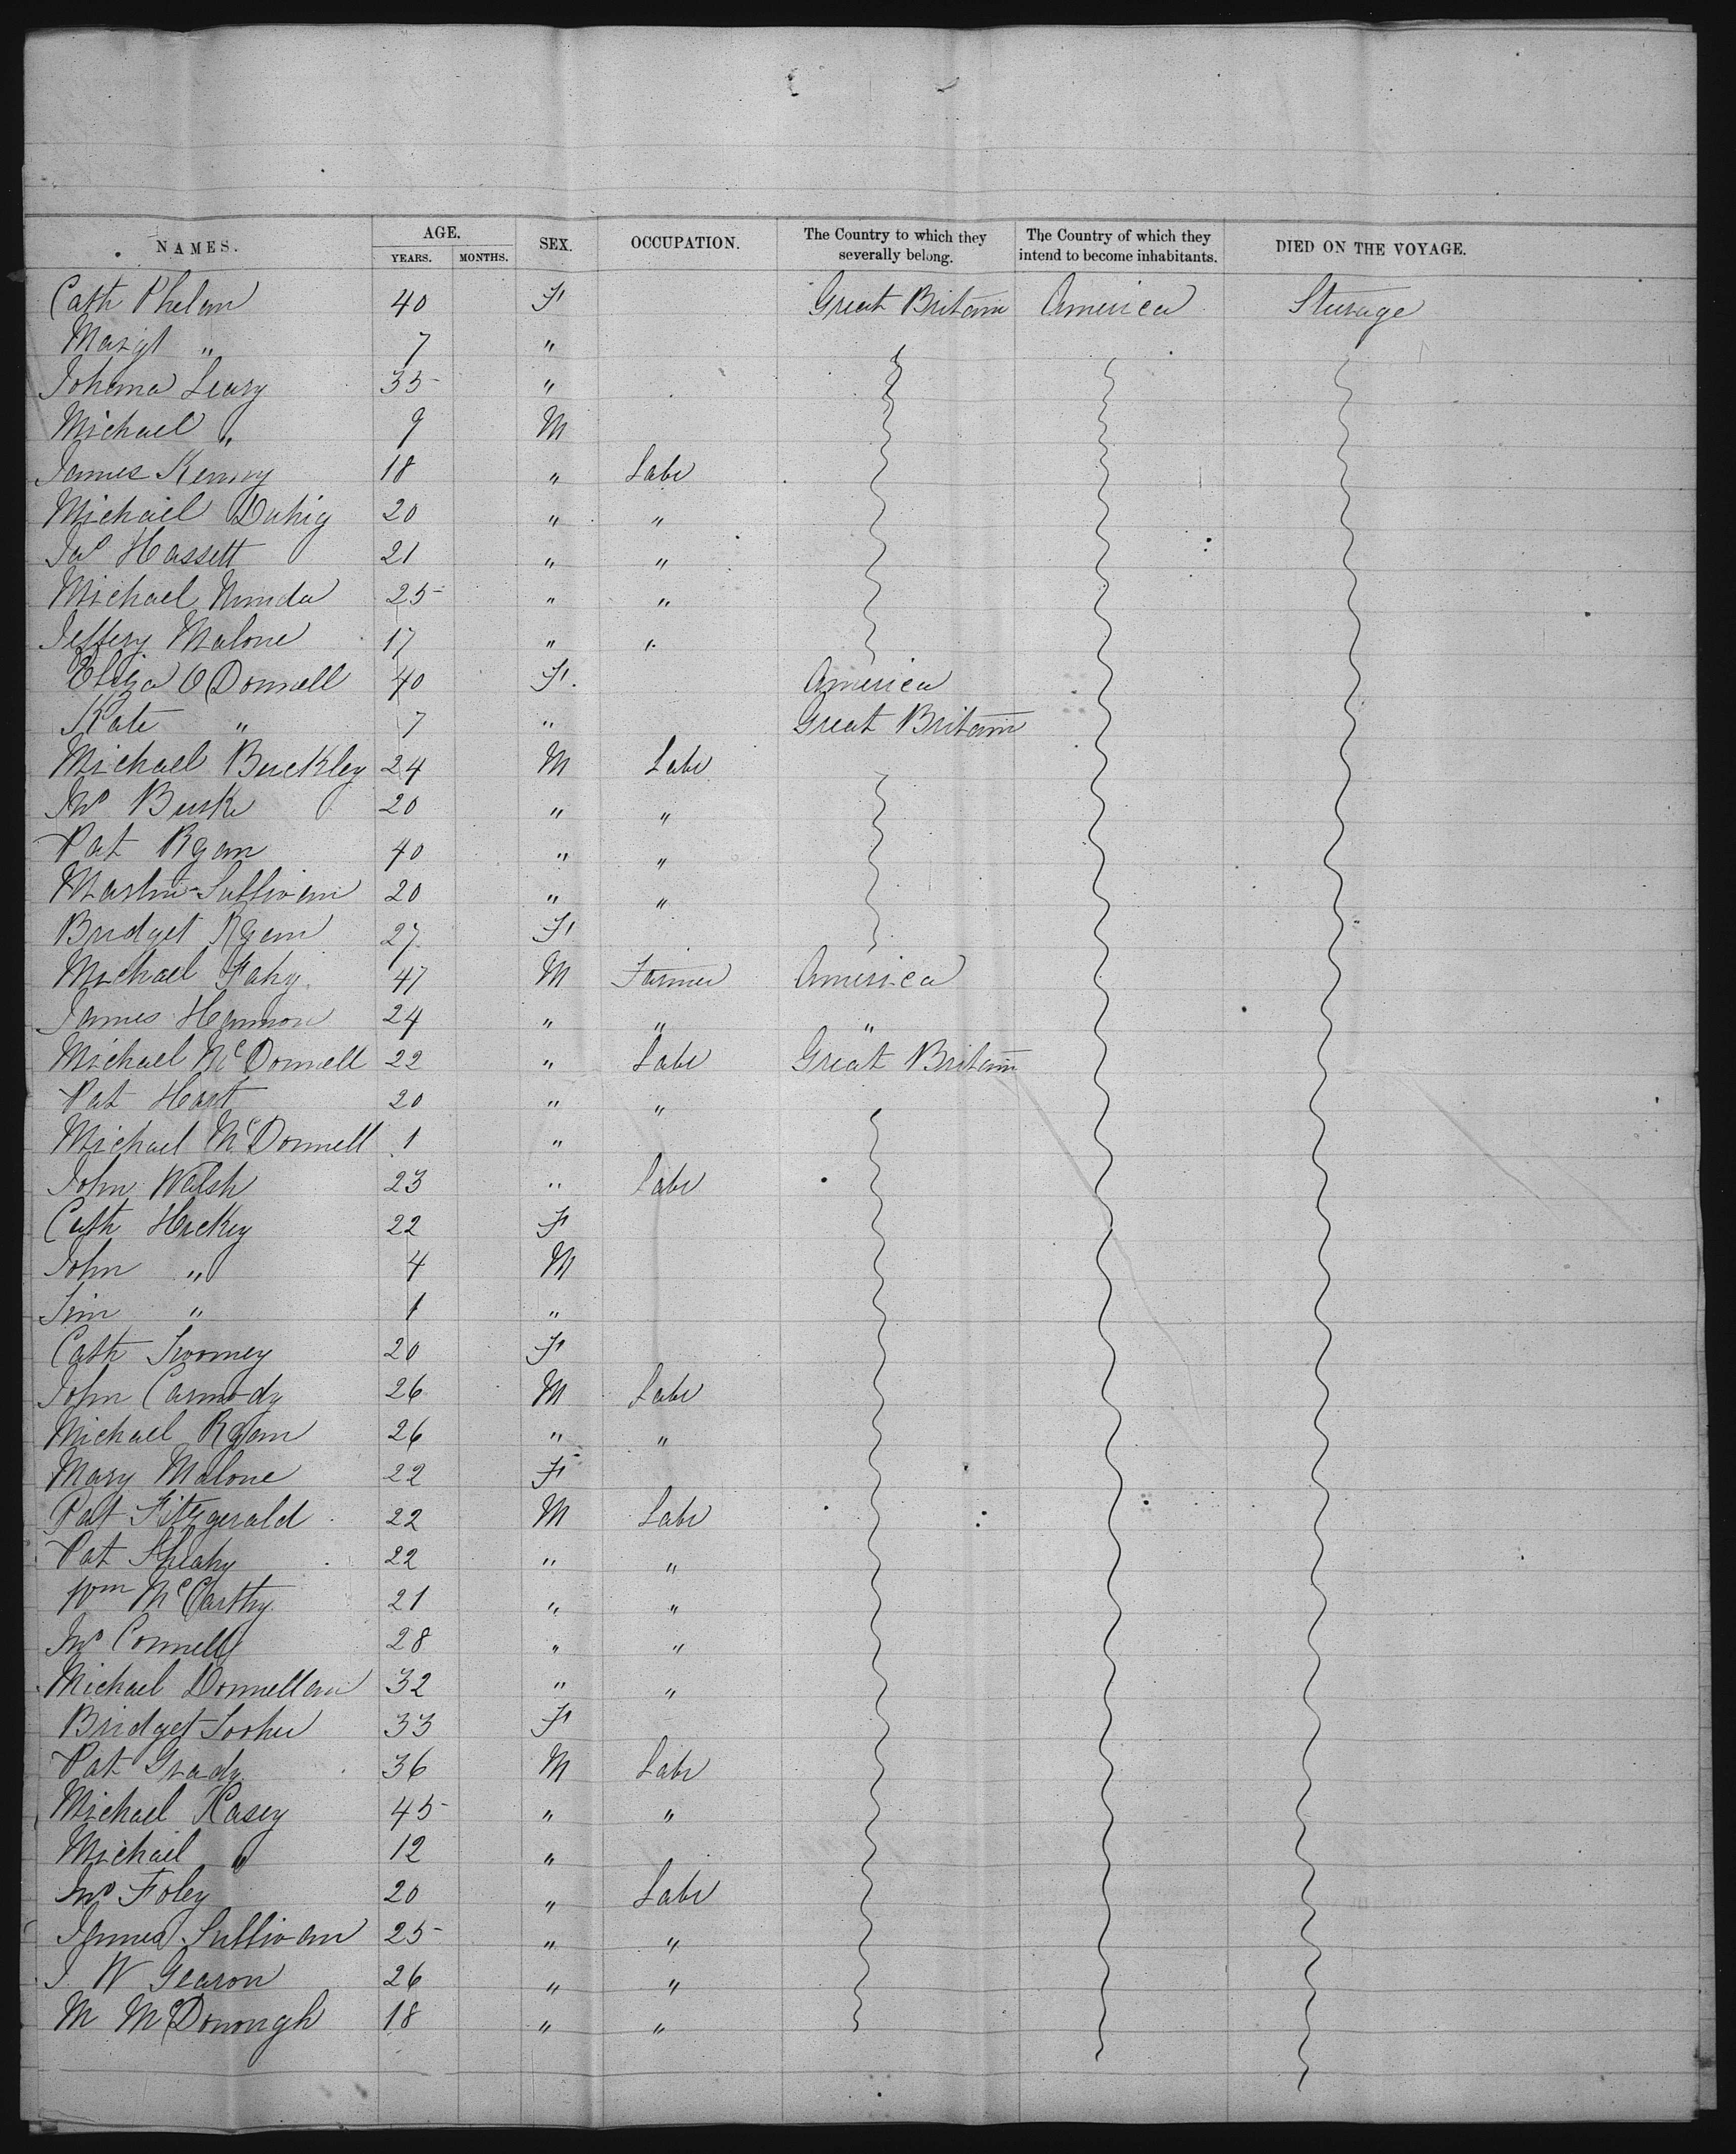 NAMES. AGE. SEX. OCCUPATION. The Country to which they severally belong. The Country of which they intend to become inhabitants. DIED ON THE VOYAGE.
YEARS. MONTHS.
Cath Phelan 40 F Great Britain America Steerage
Margt " 7 "
Johana Leary 35 "
Michael " 9 M
James Kenny 18 " Labr
Michael Duhig 20 " "
Jno Hassett 21 " "
Michael 25 " "
Jeffery Malone 17 " "
Eliza O Donnell 40 F. America
Kate " 7 " Great Britain
Michael Buckley 24 M Labr
Jno Burke 20 " "
Pat Ryan 40 " "
Martin Sullivan 20 " "
Bridget Ryan 27 F
Michael Fahy 47 M Farmer America
James Hannon 24 " " "
Michael McDonnell 22 " Labr Great Britain
Pat Hart 20 " "
Michael McDonnell 1 "
John Walsh 23 " Labr
Cath Hickey 22 F
John " 4 M
Jim " 1 "
Cath Twomey 20 F
John Carmody 26 M Labr
Michael Ryan 26 " "
Mary Malone 22 F
Pat Fitzgerald 22 M Labr
Pat Sheahy 22 " "
Wm McCarthy 21 " "
Jno Connell 28 " "
Michael Donnellan 32 " "
Bridget 33 F
Pat Grady 36 M Labr
Michael Kasey 45 " "
Michael " 12 "
Jno Foley 20 " Labr
James Sullivan 25 " "
J W Gearon 26 " "
M McDonough 18 " "